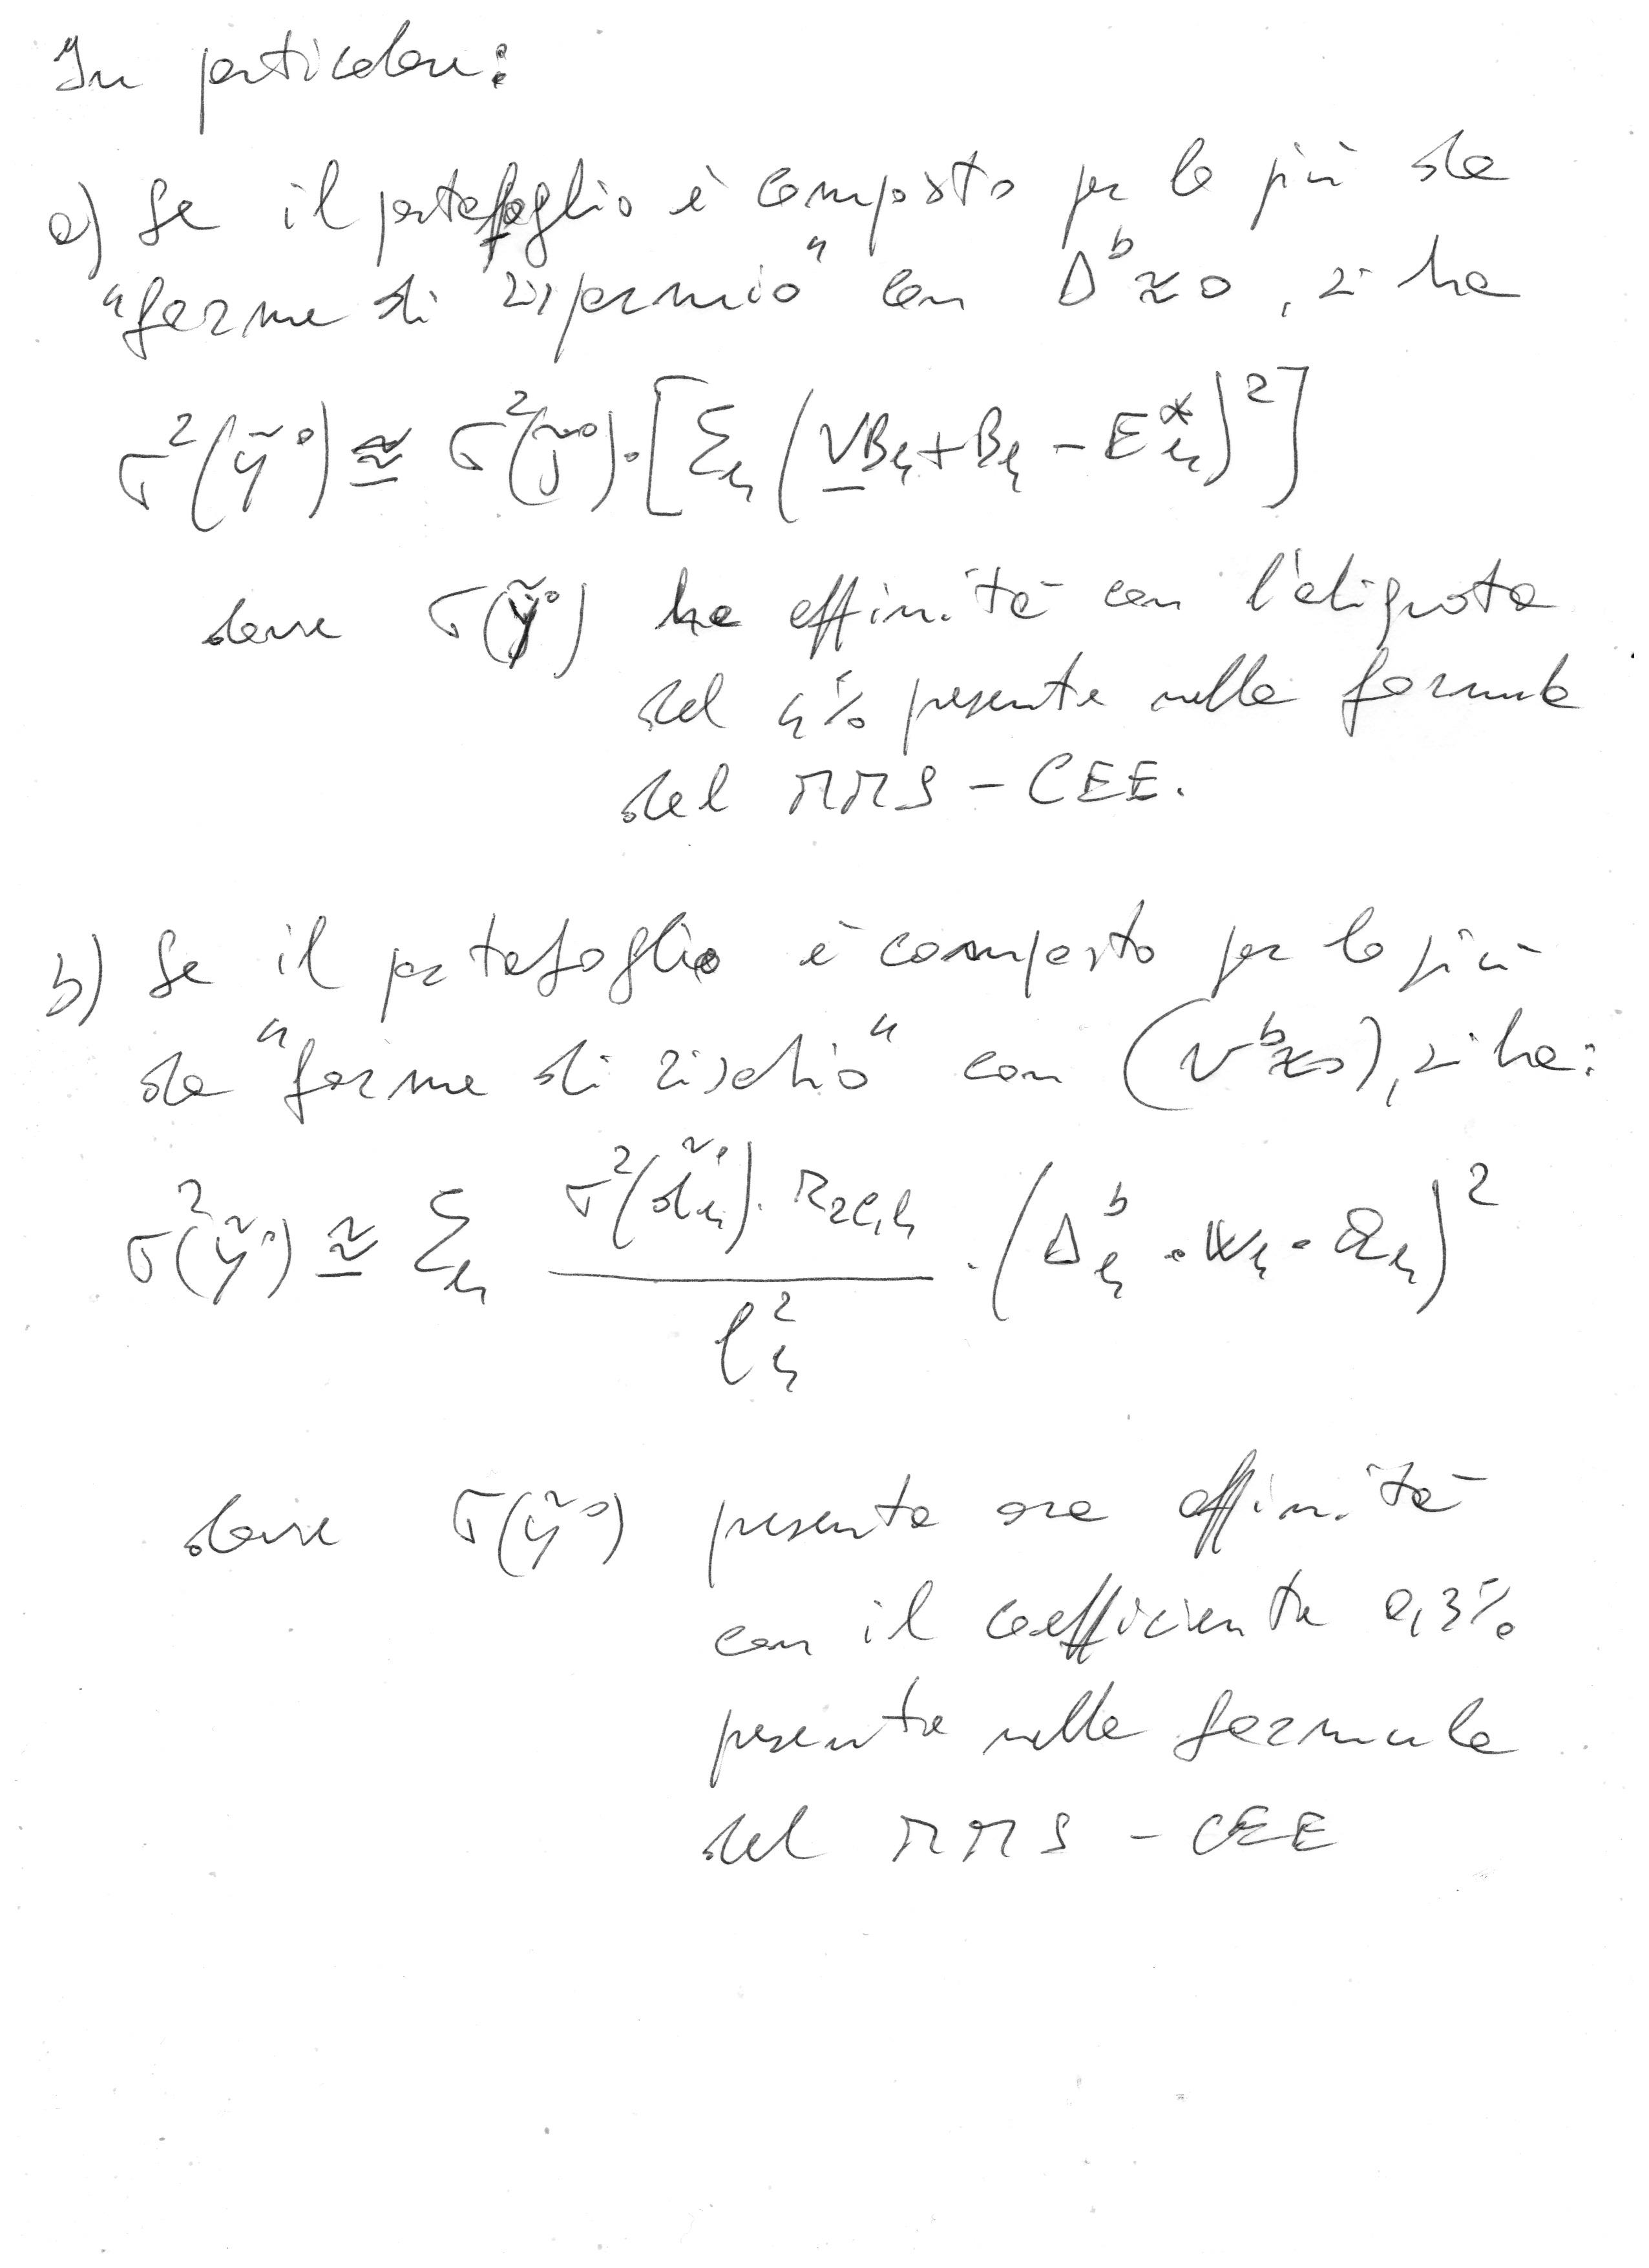 In particolare:
a) Se il portafoglio è composto per lo più da
"forme di risparmio" con Δᵇ ≈ 0, si ha
σ²(ỹ°) ≅ σ²(j̃°)·[Σₕ (VBₕ + Bₕ − E*ₕ)²]
dove σ(ỹ°) ha affinità con l'aliquota
del 4% presente nella formula
del MMS – CEE.
b) Se il portafoglio è composto per lo più
da "forme di rischio" con (Vᵇ ≈ 0), si ha:
σ²(ỹ°) ≅ Σₕ σ²(d̃ₕ°)·r₂c,ₕ / lₕ² · (Δᵇₕ · Wₕ · aₕ)²
dove σ(ỹ°) presenta ora affinità
con il coefficiente 0,3%
presente nella formula
del MMS – CEE